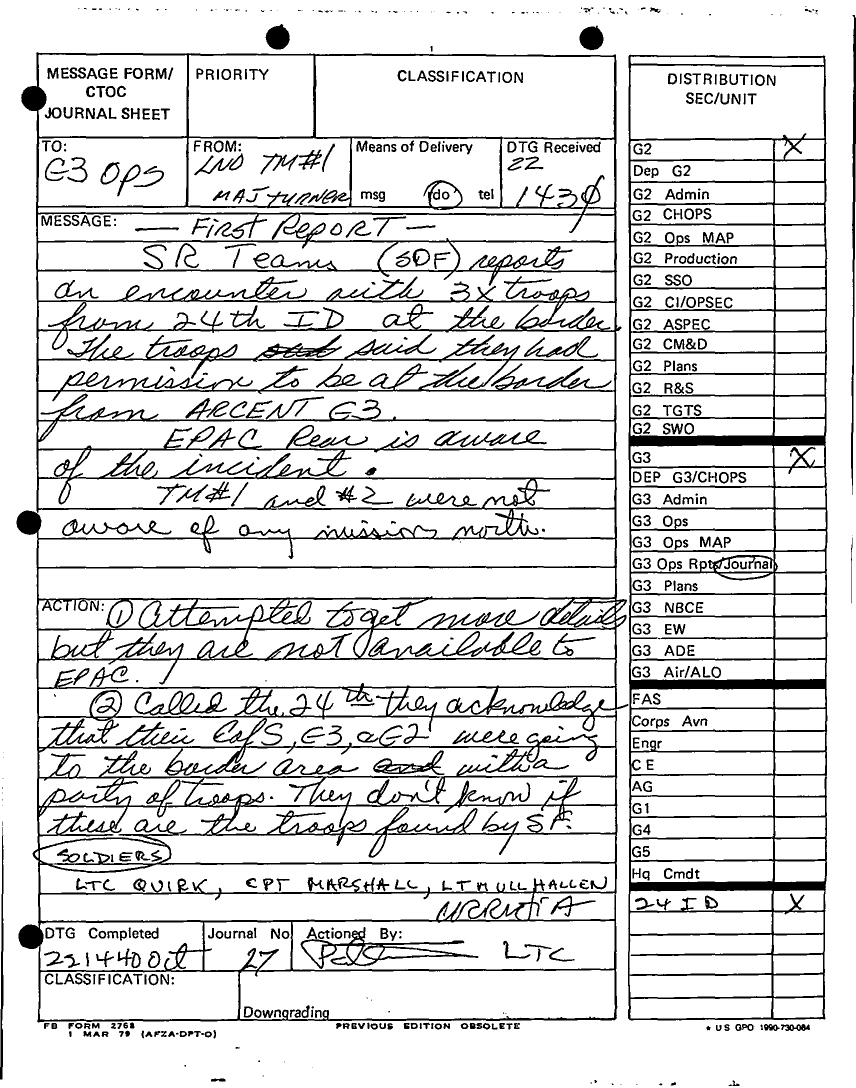 MESSAGE FORM/
CTOC
JOURNAL SHEET
PRIORITY
CLASSIFICATION
TO:
G3 OPS
FROM:
LNO TM#1
MAJ TURNER
Means of Delivery
msg do tel
DTG Received
22
1430
MESSAGE: — First Report —
SR Teams (SOF) reports
an encounter with 3x troops
from 24th ID at the border.
The troops said they had
permission to be at the border
from ARCENT G3.
EPAC Rear is aware
of the incident.
TM#1 and #2 were not
aware of any mission north.
ACTION: ① Attempted to get more details
but they are not available to
EPAC.
② Called the 24th they acknowledge
that their CofS, G3, G2 were going
to the border area and with a
party of troops. They don't know if
these are the troops found by SF.
SOLDIERS
LTC QUIRK, CPT MARSHALL, LT MULLHALLEN
URRUTIA
DTG Completed
221440 Oct
Journal No
27
Actioned By:
LTC
CLASSIFICATION:
Downgrading
FB FORM 2768
1 MAR 79 (AFZA-DPT-O)
PREVIOUS EDITION OBSOLETE
DISTRIBUTION
SEC/UNIT
G2 X
Dep G2
G2 Admin
G2 CHOPS
G2 Ops MAP
G2 Production
G2 SSO
G2 CI/OPSEC
G2 ASPEC
G2 CM&D
G2 Plans
G2 R&S
G2 TGTS
G2 SWO
G3 X
DEP G3/CHOPS
G3 Admin
G3 Ops
G3 Ops MAP
G3 Ops Rpts/Journal
G3 Plans
G3 NBCE
G3 EW
G3 ADE
G3 Air/ALO
FAS
Corps Avn
Engr
C E
AG
G1
G4
G5
Hq Cmdt
24 ID X
* US GPO 1990-730-084